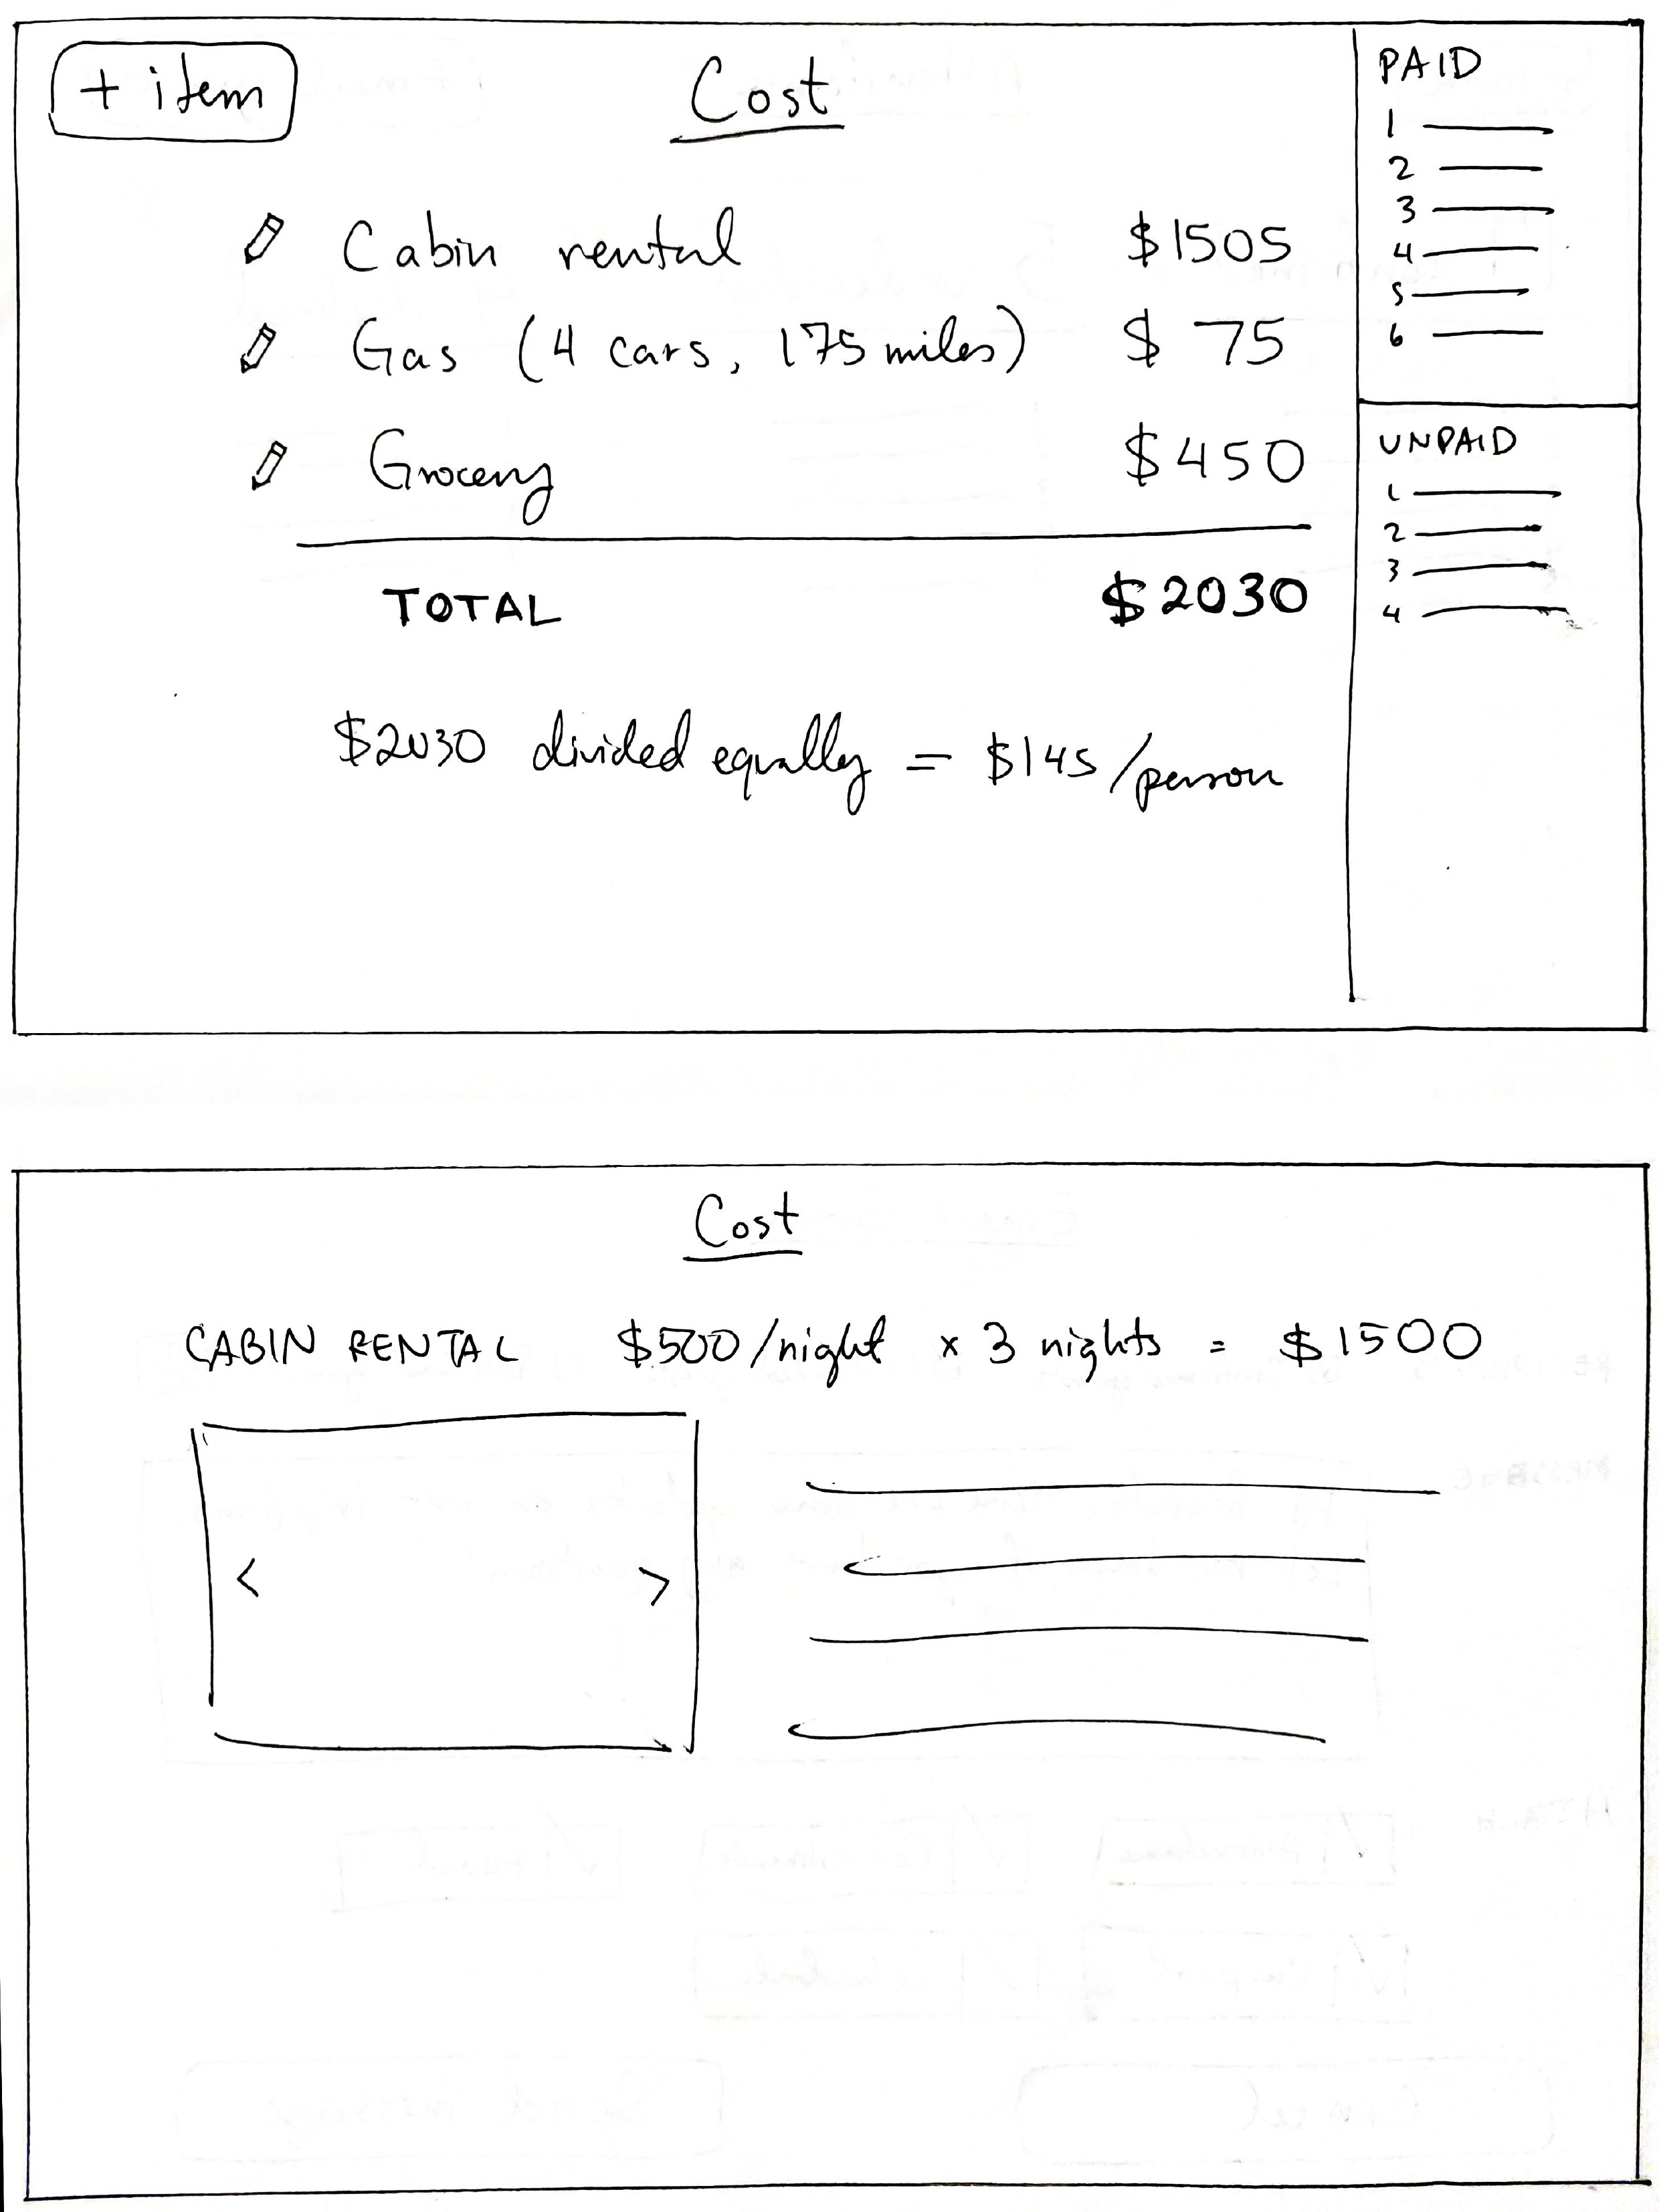 + item
Cost
Cabin rental $1505
Gas (4 cars, 175 miles) $ 75
Grocery $450
TOTAL $2030
$2030 divided equally = $145/person
PAID
1
2
3
4
5
6
UNPAID
1
2
3
4
Cost
CABIN RENTAL $500/night x 3 nights = $1500
< >